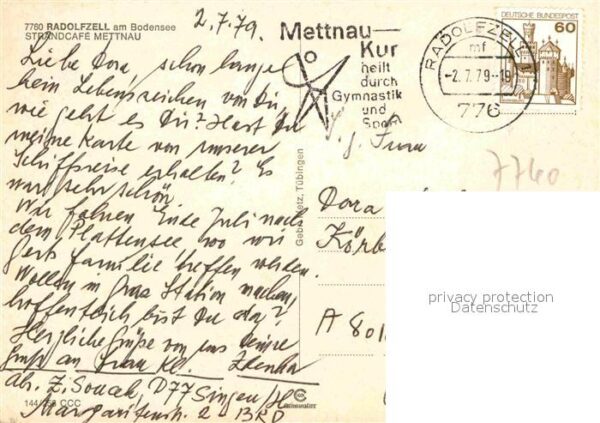 7760 RADOLFZELL am Bodensee
STRANDCAFÉ METTNAU
2.7.79.
Liebe Dora, schon lange
kein Lebenszeichen von Dir,
wie geht es Dir? Hast Du
meine Karte von unserer
Schiffsreise erhalten? Es
war sehr schön.
Wir fahren Ende Juli nach
dem Plattensee, wo wir
Gerts Familie treffen werden.
Wollen in Graz Station machen,
hoffentlich bist Du da?
Herzliche Grüße von uns Deine
Gruß an Frau Kl. Zdenka
Abs. Z. D77 Singen/H
Margaritenstr. 2 - BRD
144/ CCC
Gebr. Metz, Tübingen
Mettnau-
Kur
heilt
durch
Gymnastik
und
Sport
RADOLFZELL
mf
-2.7.79-19
776
DEUTSCHE BUNDESPOST
60
Frau
7760
Dora
A 801
privacy protection
Datenschutz